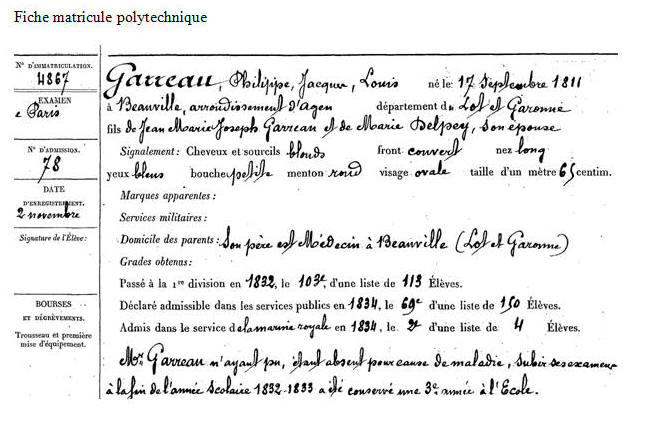 Fiche matricule polytechnique
N° D'IMMATRICULATION.
4867
EXAMEN
e Paris
N° D'ADMISSION.
78
DATE
D'ENREGISTREMENT.
2 novembre
Signature de l'Élève:
BOURSES
ET DÉGRÈVEMENTS.
Trousseau et première
mise d'équipement.
Garreau, Philippe, Jacques, Louis né le 17 Septembre 1811
à Beauville, arrondissement d'Agen département du Lot et Garonne
fils de Jean Marie Joseph Garreau et de Marie Delpey, son épouse
Signalement: Cheveux et sourcils blonds front couvert nez long
yeux bleus bouche petite menton rond visage ovale taille d'un mètre 65 centim.
Marques apparentes:
Services militaires:
Domicile des parents: Son père est Médecin à Beauville (Lot et Garonne)
Grades obtenus:
Passé à la 1re division en 1832, le 103e, d'une liste de 113 Élèves.
Déclaré admissible dans les services publics en 1834, le 69e d'une liste de 150 Élèves.
Admis dans le service de la marine royale en 1834, le 2e d'une liste de 4 Élèves.
Mr Garreau n'ayant pu, étant absent pour cause de maladie, subir ses examens
à la fin de l'année scolaire 1832-1833 a été conservé une 3e année à l'Ecole.